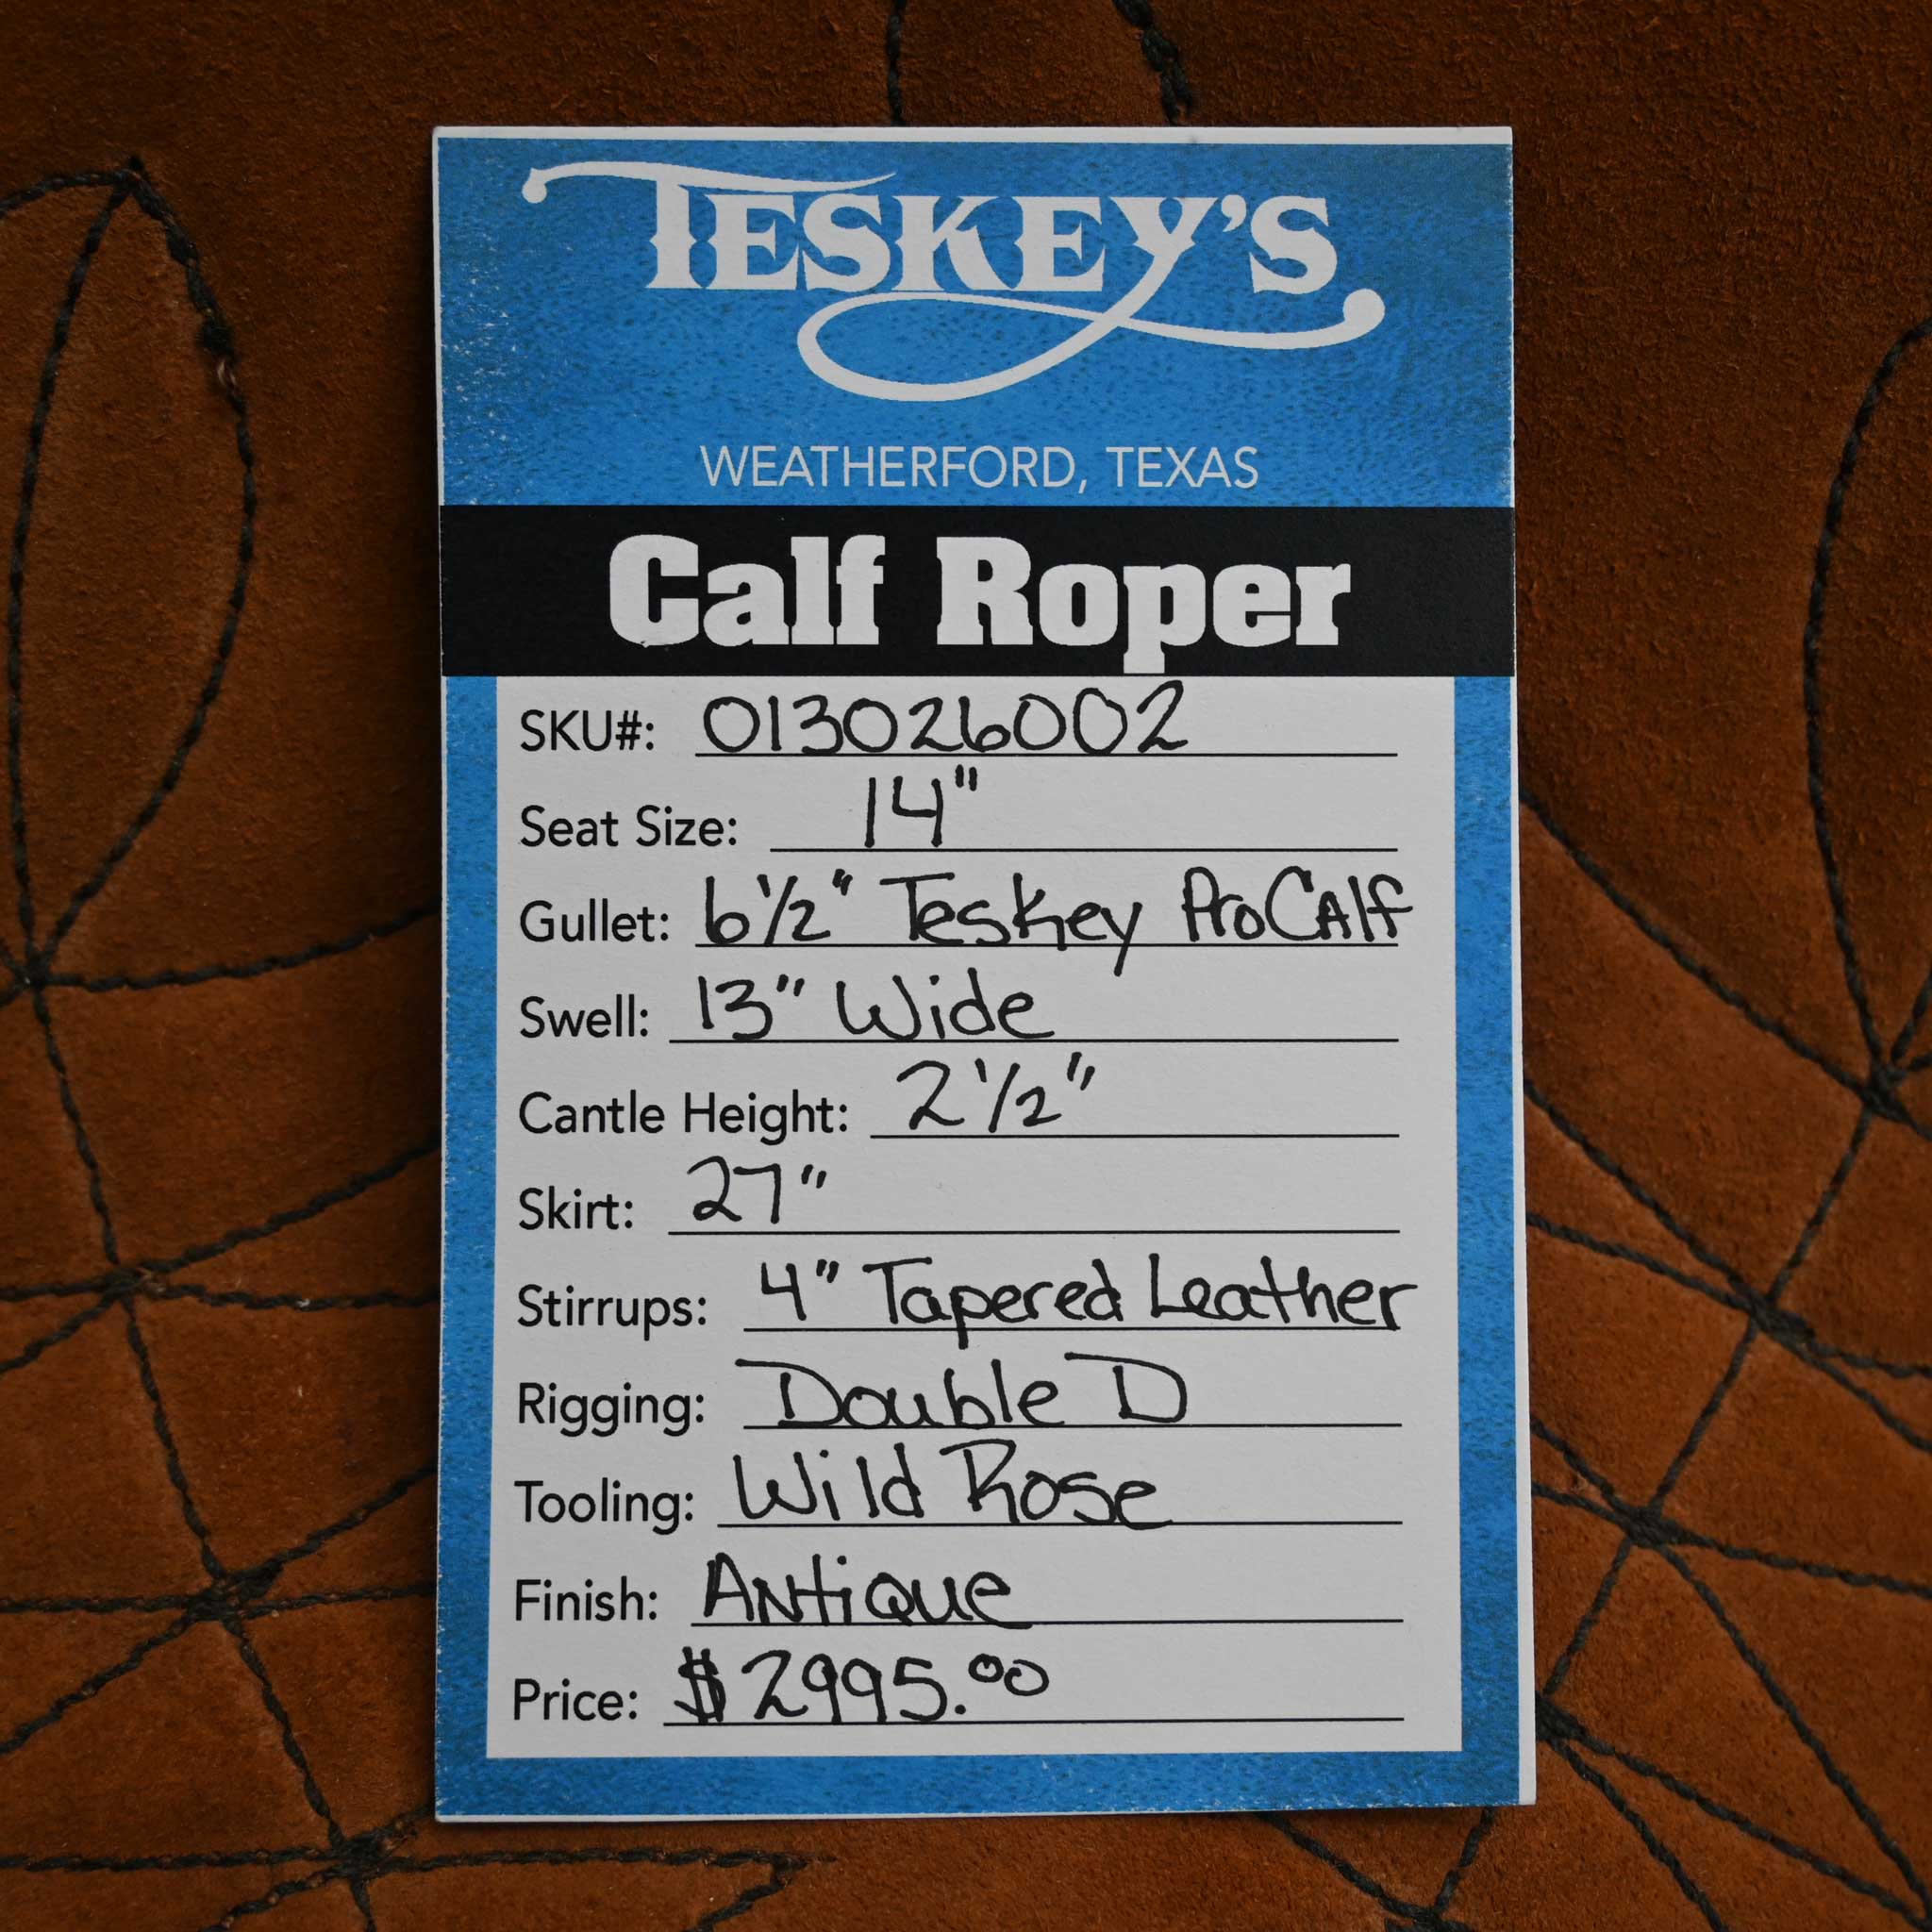 TESKEY'S
WEATHERFORD, TEXAS
Calf Roper
SKU#: 013026002
Seat Size: 14"
Gullet: 6 1/2" Teskey ProCAlf
Swell: 13" Wide
Cantle Height: 2 1/2"
Skirt: 27"
Stirrups: 4" Tapered Leather
Rigging: Double D
Tooling: Wild Rose
Finish: Antique
Price: $2995.00